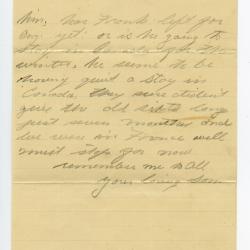 him, has Frank left for
Eng yet or is he going to
stay in Canada for the
winter, he seems to be
having quite a stay in
Canada, they sure didn't
give the old
just seven months and
we were in France well
must stop for now
remember me to all
Your loving Son